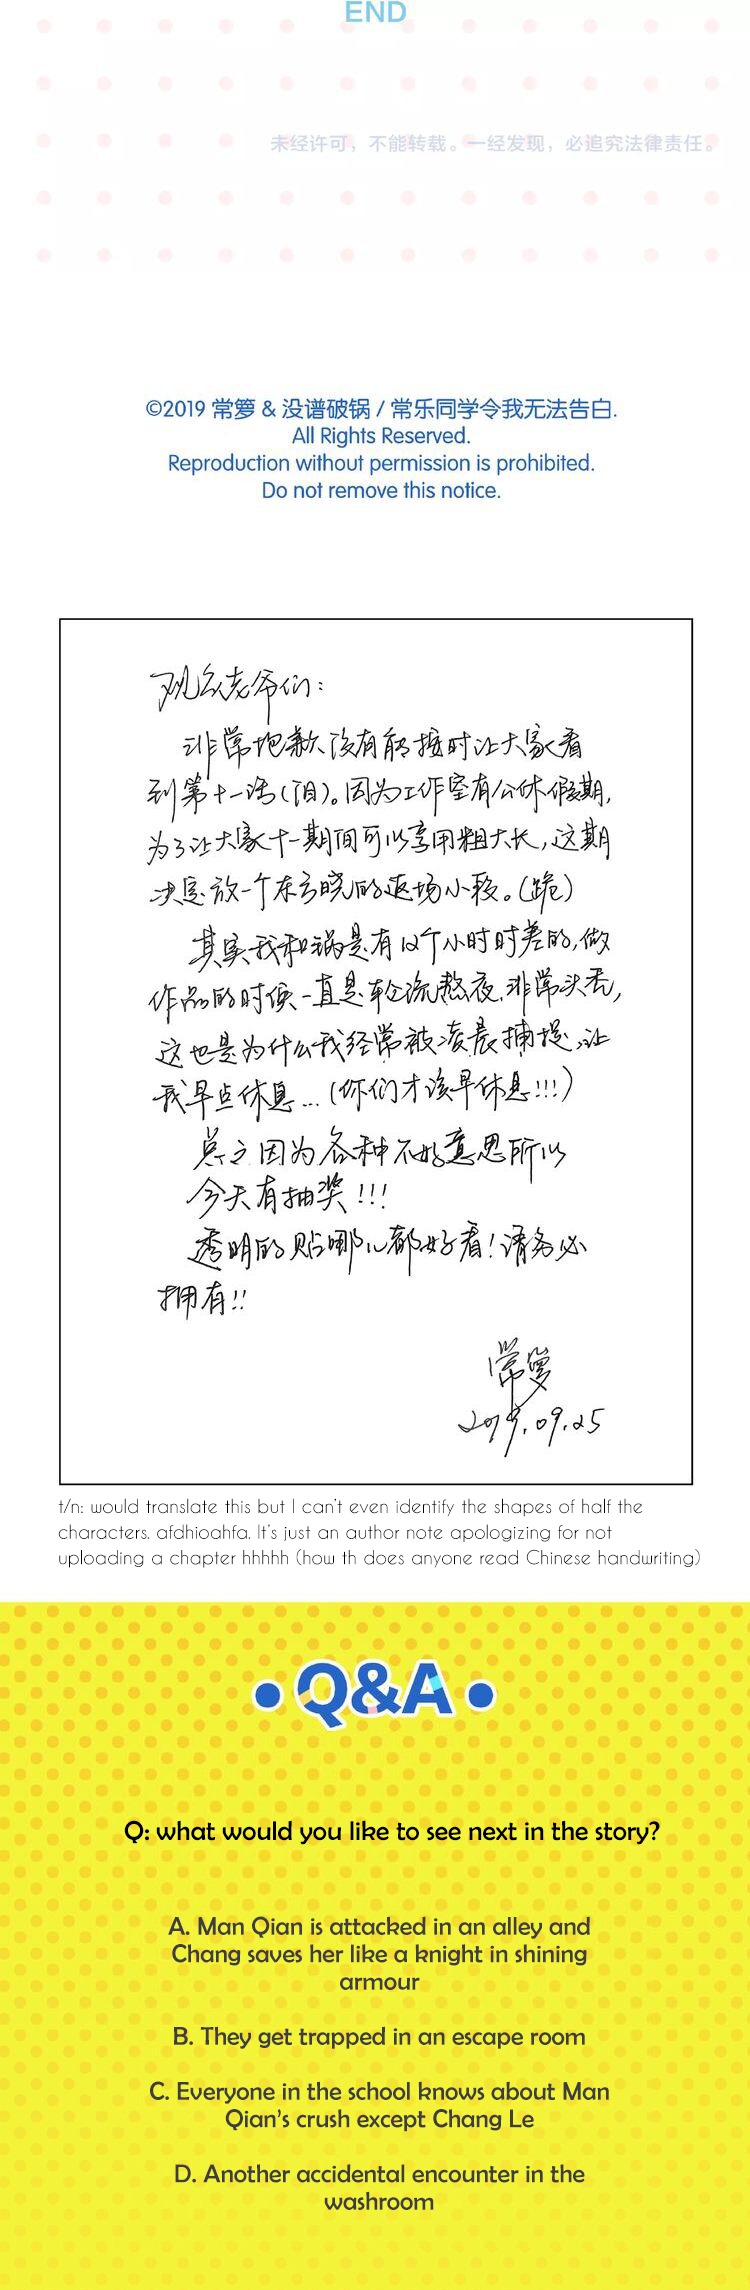 END
未经许可，不能转载。一经发现，必追究法律责任。
©2019 常箩 & 没谱破锅 / 常乐同学令我无法告白.
All Rights Reserved.
Reproduction without permission is prohibited.
Do not remove this notice.
观众老爷们：
非常抱歉没有能按时让大家看
到第十一话(泪)。因为工作室有公休假期，
为了让大家十一期间可以享用粗大长，这期
决定放一个东方晓的返场小段。(跪)
其实我和锅是有12个小时时差的，做
作品的时候一直是轮流熬夜，非常头秃，
这也是为什么我经常被凌晨捕捉，让
我早点休息…(你们才该早休息!!!)
总之因为各种不好意思所以
今天有抽奖!!!
透明的贴哪儿都好看！请务必
拥有!!
常箩
2019.09.25
t/n: would translate this but I can't even identify the shapes of half the
characters. afdhioahfa. It's just an author note apologizing for not
uploading a chapter hhhhh (how th does anyone read Chinese handwriting)
• Q&A •
Q: what would you like to see next in the story?
A. Man Qian is attacked in an alley and
Chang saves her like a knight in shining
armour
B. They get trapped in an escape room
C. Everyone in the school knows about Man
Qian's crush except Chang Le
D. Another accidental encounter in the
washroom